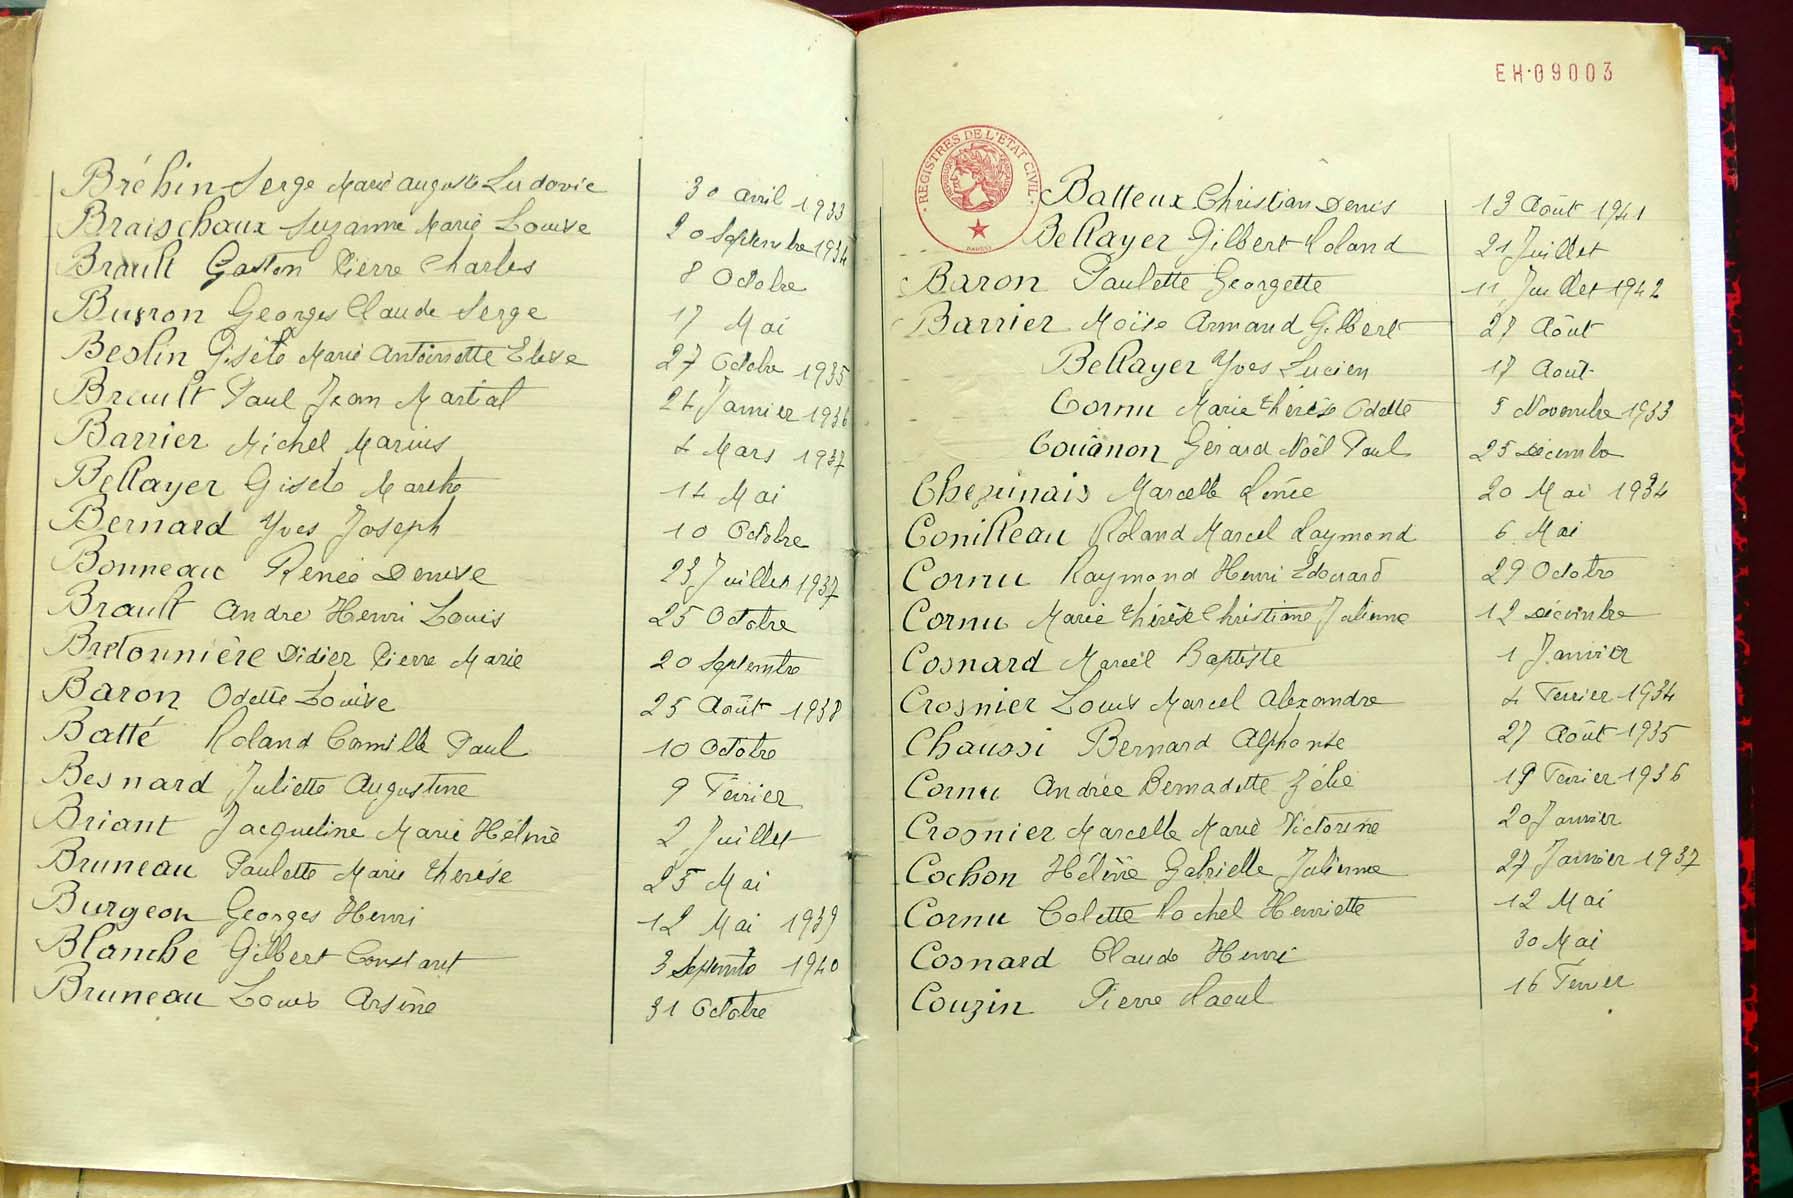 Bréhin Serge Marie Auguste Ludovic 30 avril 1933
Braischaux Suzanne Marie Louise 20 Septembre 1934
Brault Gaston Pierre Charles 8 Octobre
Buron Georges Claude Serge 17 Mai
Beslin Gisèle Marie Antoinette Elise 27 Octobre 1935
Brault Paul Jean Martial 24 Janvier 1936
Barrier Michel Marius 4 Mars 1937
Bellayer Gisèle Marthe 14 Mai
Bernard Yves Joseph 10 Octobre
Bonneau Renée Denise 23 Juillet 1937
Brault André Henri Louis 25 Octobre
Bretonnière Didier Pierre Marie 20 Septembre
Baron Odette Louise 25 Août 1938
Batté Roland Camille Paul 10 Octobre
Besnard Juliette Augustine 9 Février
Briant Jacqueline Marie Hélène 2 Juillet
Bruneau Paulette Marie Thérèse 25 Mai
Burgeon Georges Henri 12 Mai 1939
Blanche Gilbert Constant 3 Septembre 1940
Bruneau Louis Arsène 31 Octobre
EH·09003
REGISTRES DE L'ETAT CIVIL
Batteux Christian Denis 13 Août 1941
Bellayer Gilbert Roland 21 Juillet
Baron Paulette Georgette 11 Juillet 1942
Barrier Moïse Armand Gilbert 27 Août
Bellayer Yves Lucien 17 Août
Cornu Marie Thérèse Odette 5 Novembre 1933
Couanon Gérard Noël Paul 25 Décembre
Chequinais Marcelle Renée 20 Mai 1934
Conilleau Roland Marcel Raymond 6 Mai
Cornu Raymond Henri Edouard 29 Octobre
Cornu Marie Thérèse Christiane Julienne 12 Décembre
Cosnard Marcel Baptiste 1 Janvier
Crosnier Louis Marcel Alexandre 4 Février 1934
Chaussi Bernard Alphonse 27 Août 1935
Cornu Andrée Bernadette Zélie 19 Février 1936
Crosnier Marcelle Marie Victorine 20 Janvier
Cochon Hélène Gabrielle Julienne 27 Janvier 1937
Cornu Colette Rachel Henriette 12 Mai
Cosnard Claude Henri 30 Mai
Couzin Pierre Raoul 16 Février